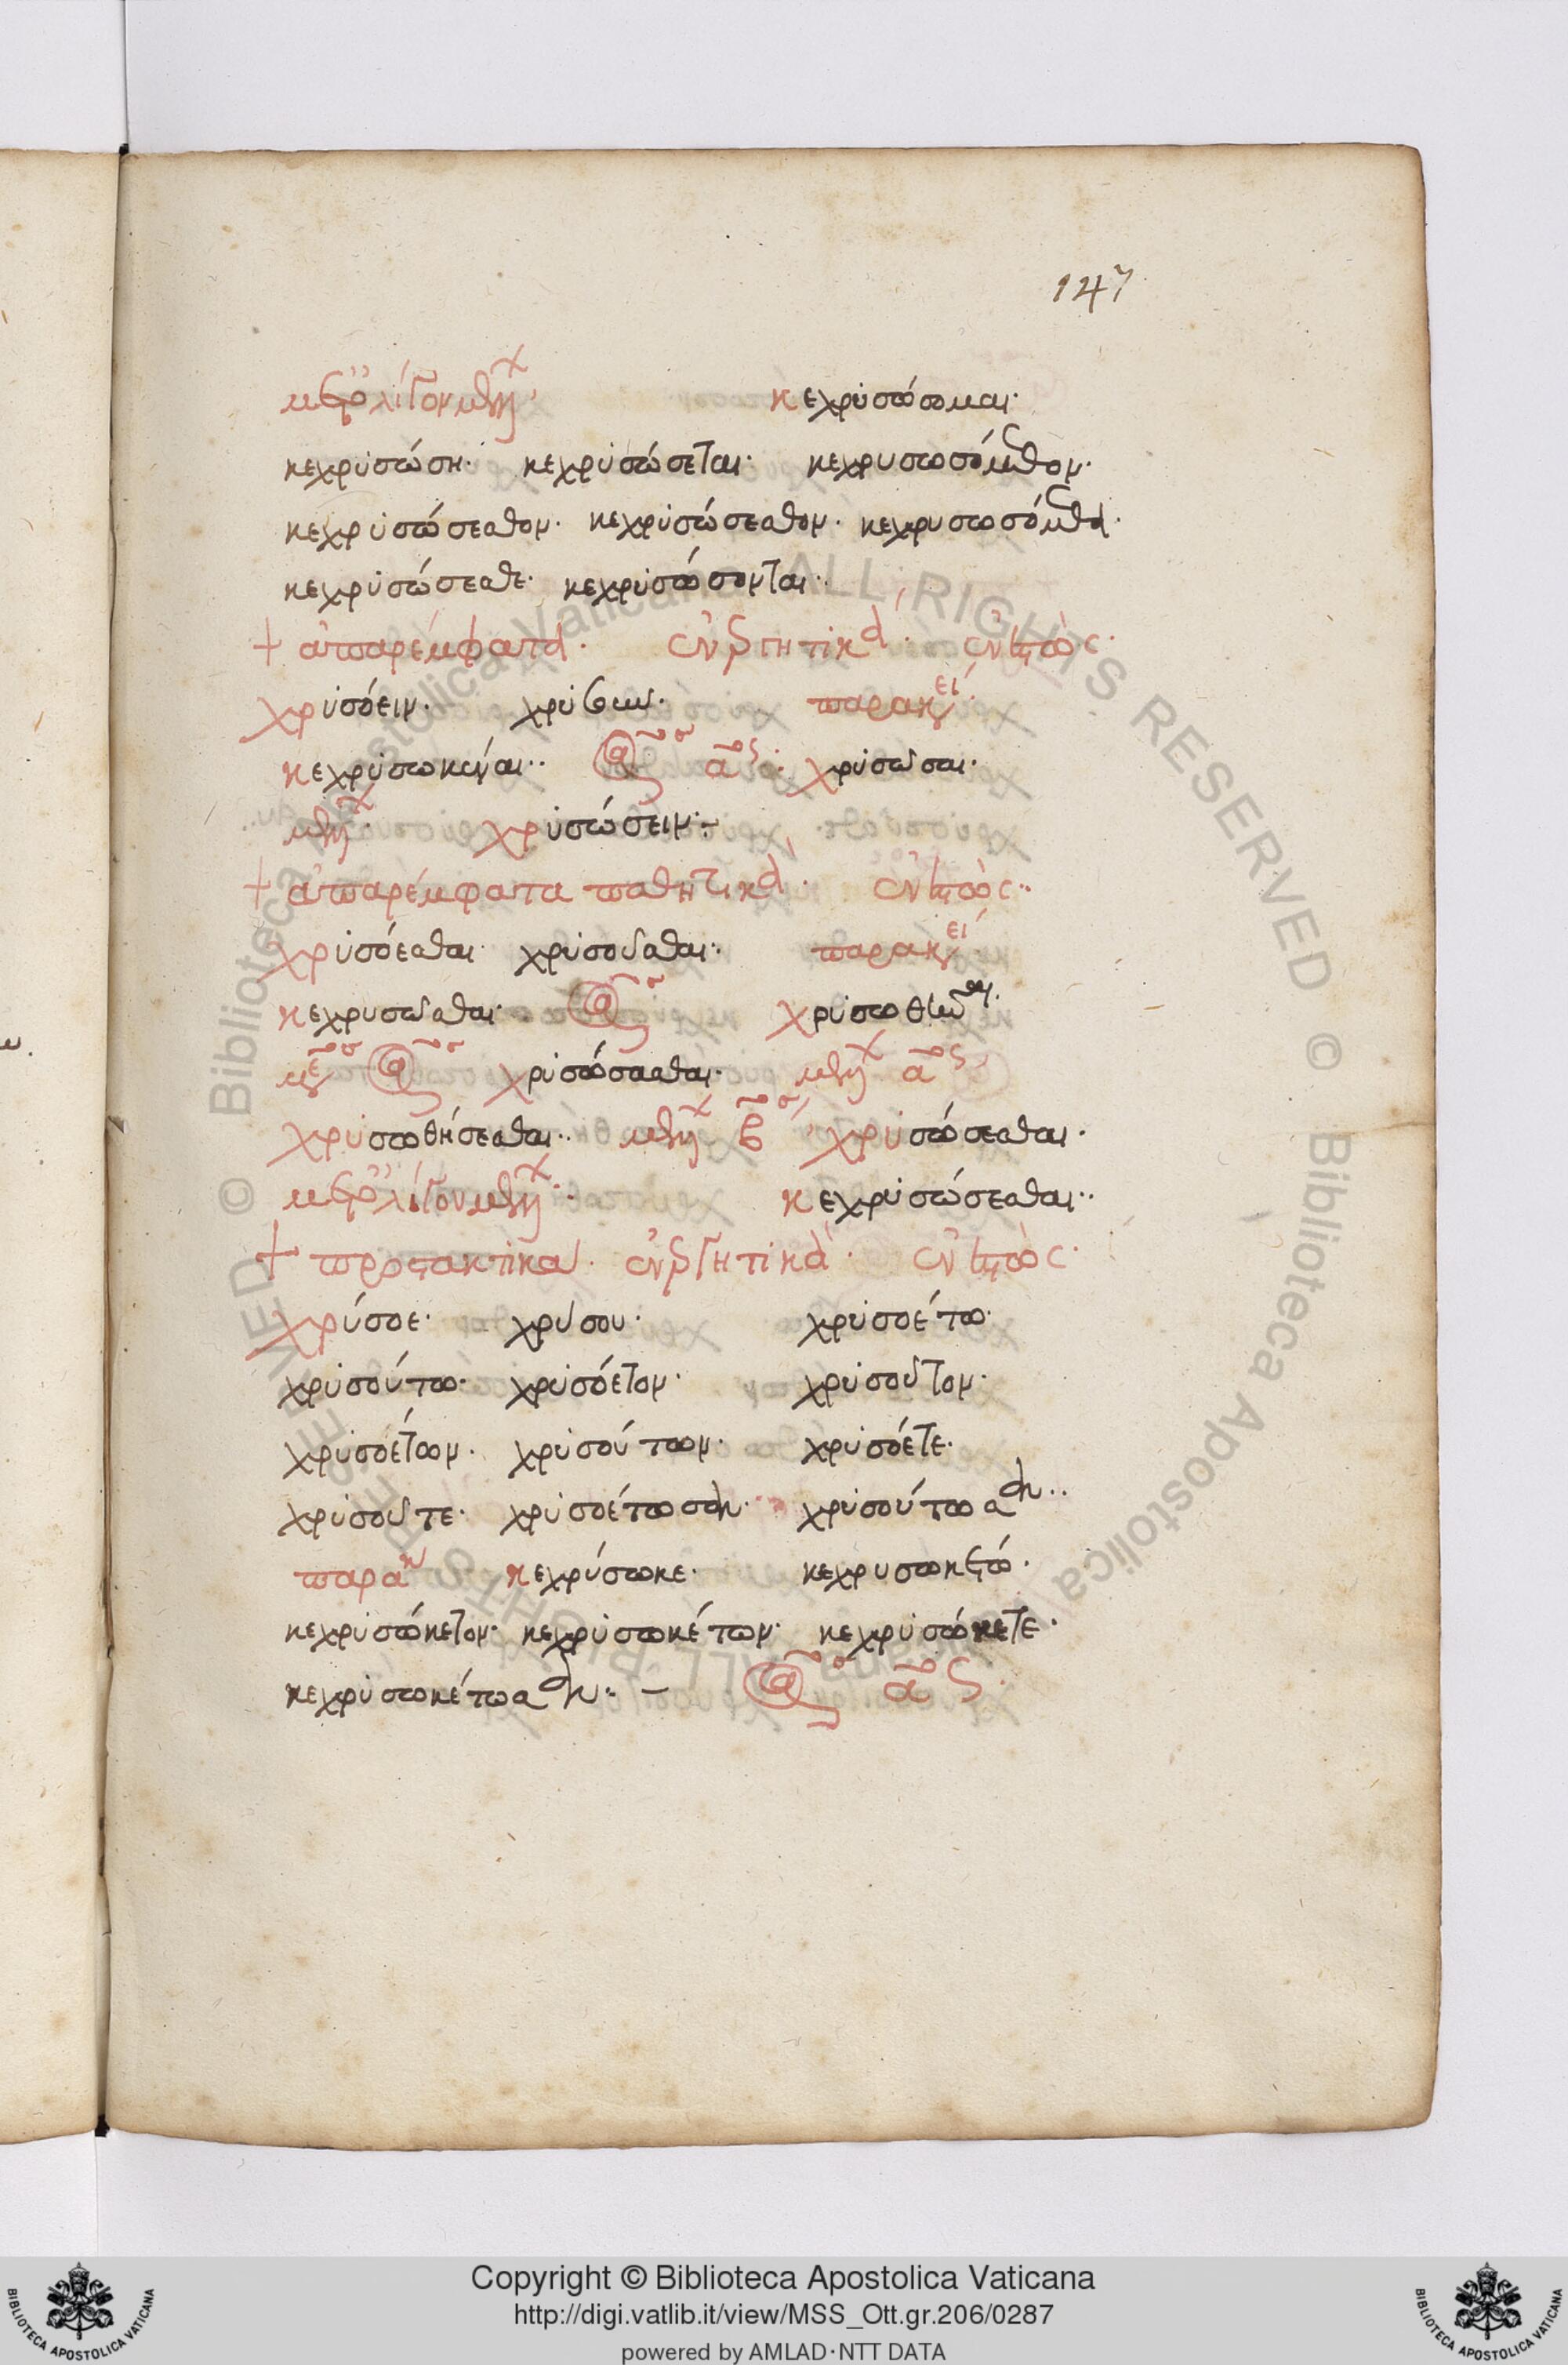 147
μετ' ὀλίγον μέλλων κεχρυσώσομαι·
κεχρυσώση· κεχρυσώσεται· κεχρυσωσόμεθον·
κεχρυσώσεσθον· κεχρυσώσεσθον· κεχρυσωσόμεθα·
κεχρυσώσεσθε· κεχρυσώσονται··
+ ἀπαρέμφατα· ἐνεργητικά· ἐνεστὼς·
χρυσόειν· χρυσοῦν· παρακεί·
κεχρυσωκέναι·· ἀόρ αος· χρυσῶσαι·
μέλλ· χρυσώσειν·–
+ ἀπαρέμφατα παθητικά· ἐνεστὼς··
χρυσόεσθαι· χρυσοῦσθαι·· παρακεί·
κεχρυσῶσθαι· ἀόρ χρυσωθῆναι·
μέσος ἀόρ χρυσώσασθαι· μέλλ αος
χρυσωθήσεσθαι·· μέλλ β χρυσώσεσθαι·
μετ' ὀλίγον μέλλ·· κεχρυσώσεσθαι··
+ προστακτικὰ· ἐνεργητικὰ· ἐνεστὼς·
χρύσοε· χρύσου· χρυσοέτω·
χρυσούτω· χρυσόετον· χρυσοῦτον·
χρυσοέτων· χρυσούτων· χρυσόετε·
χρυσοῦτε· χρυσοέτωσαν· χρυσούτωσαν··
παρακ κεχρύσωκε· κεχρυσωκέτω·
κεχρυσώκετον· κεχρυσωκέτων· κεχρυσώκετε·
κεχρυσωκέτωσαν·· – ἀόρ αος·
Copyright © Biblioteca Apostolica Vaticana
http://digi.vatlib.it/view/MSS_Ott.gr.206/0287
powered by AMLAD·NTT DATA